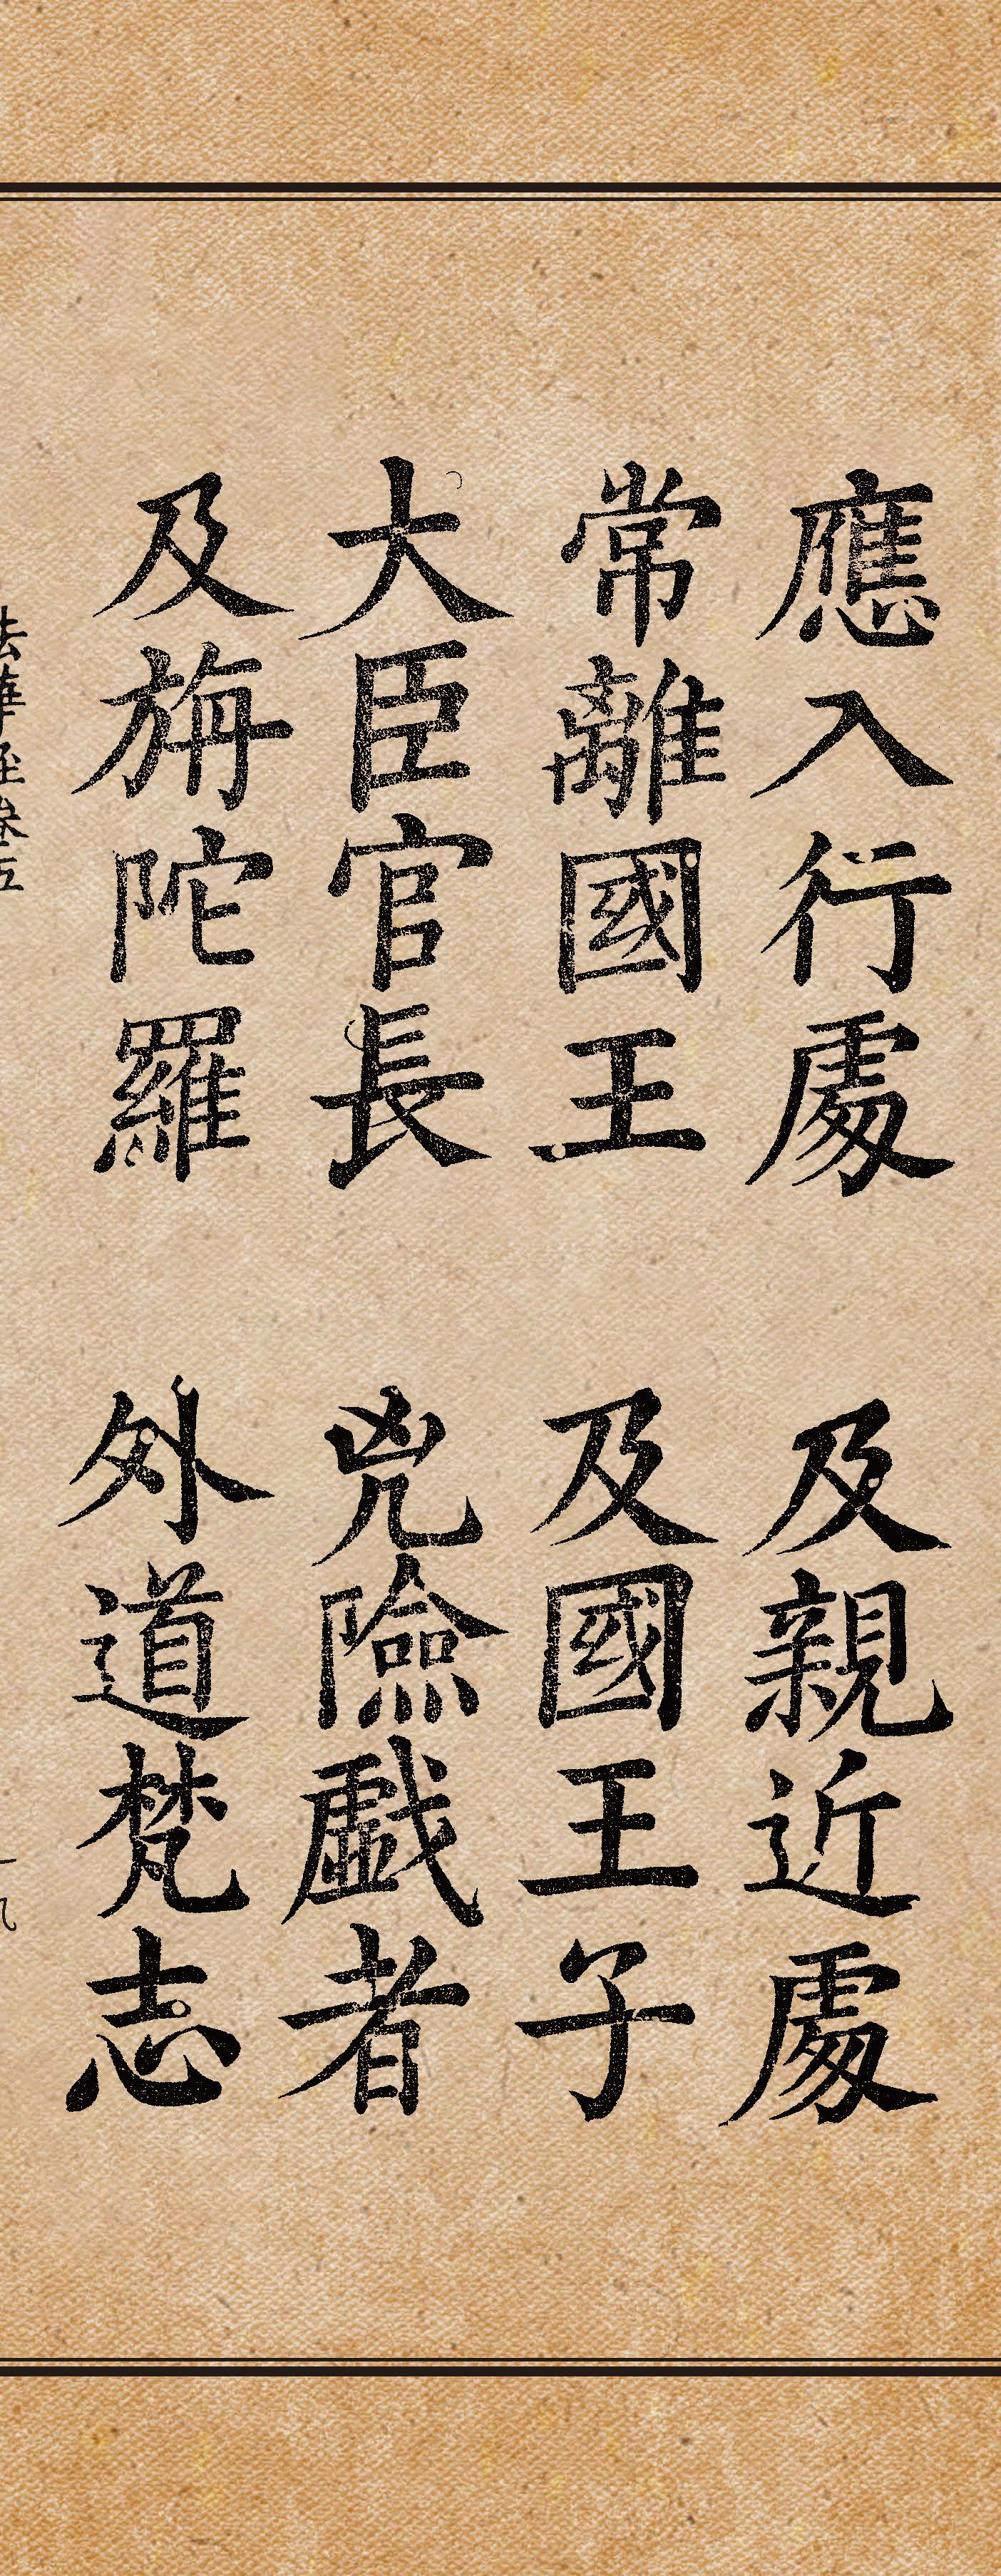 應入行處 及親近處
常離國王 及國王子
大臣官長 兇險戱者
及旃陀羅 外道梵志
法華經卷五
十九